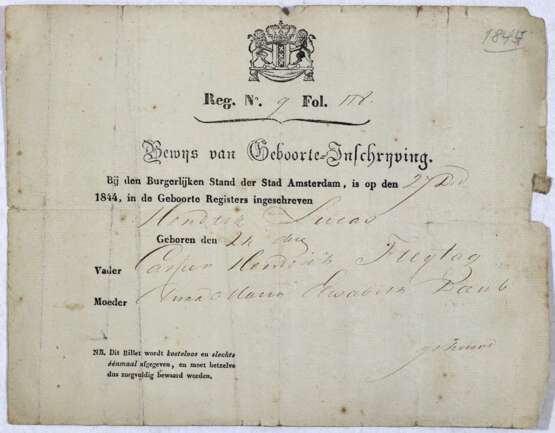 1844
Reg. No. 9 Fol.
Bewys van Geboorte-Inschryving.
Bij den Burgerlijken Stand der Stad Amsterdam, is op den 27 Dec
1844, in de Geboorte Registers ingeschreven
Hendrik Lucas
Geboren den 24 dec
Vader Casper Hendrik Freytag
Moeder Anna Maria Elisabeth Raub
NB. Dit Billet wordt kosteloos en slechts
éénmaal afgegeven, en moet hetzelve
dus zorgvuldig bewaard worden.